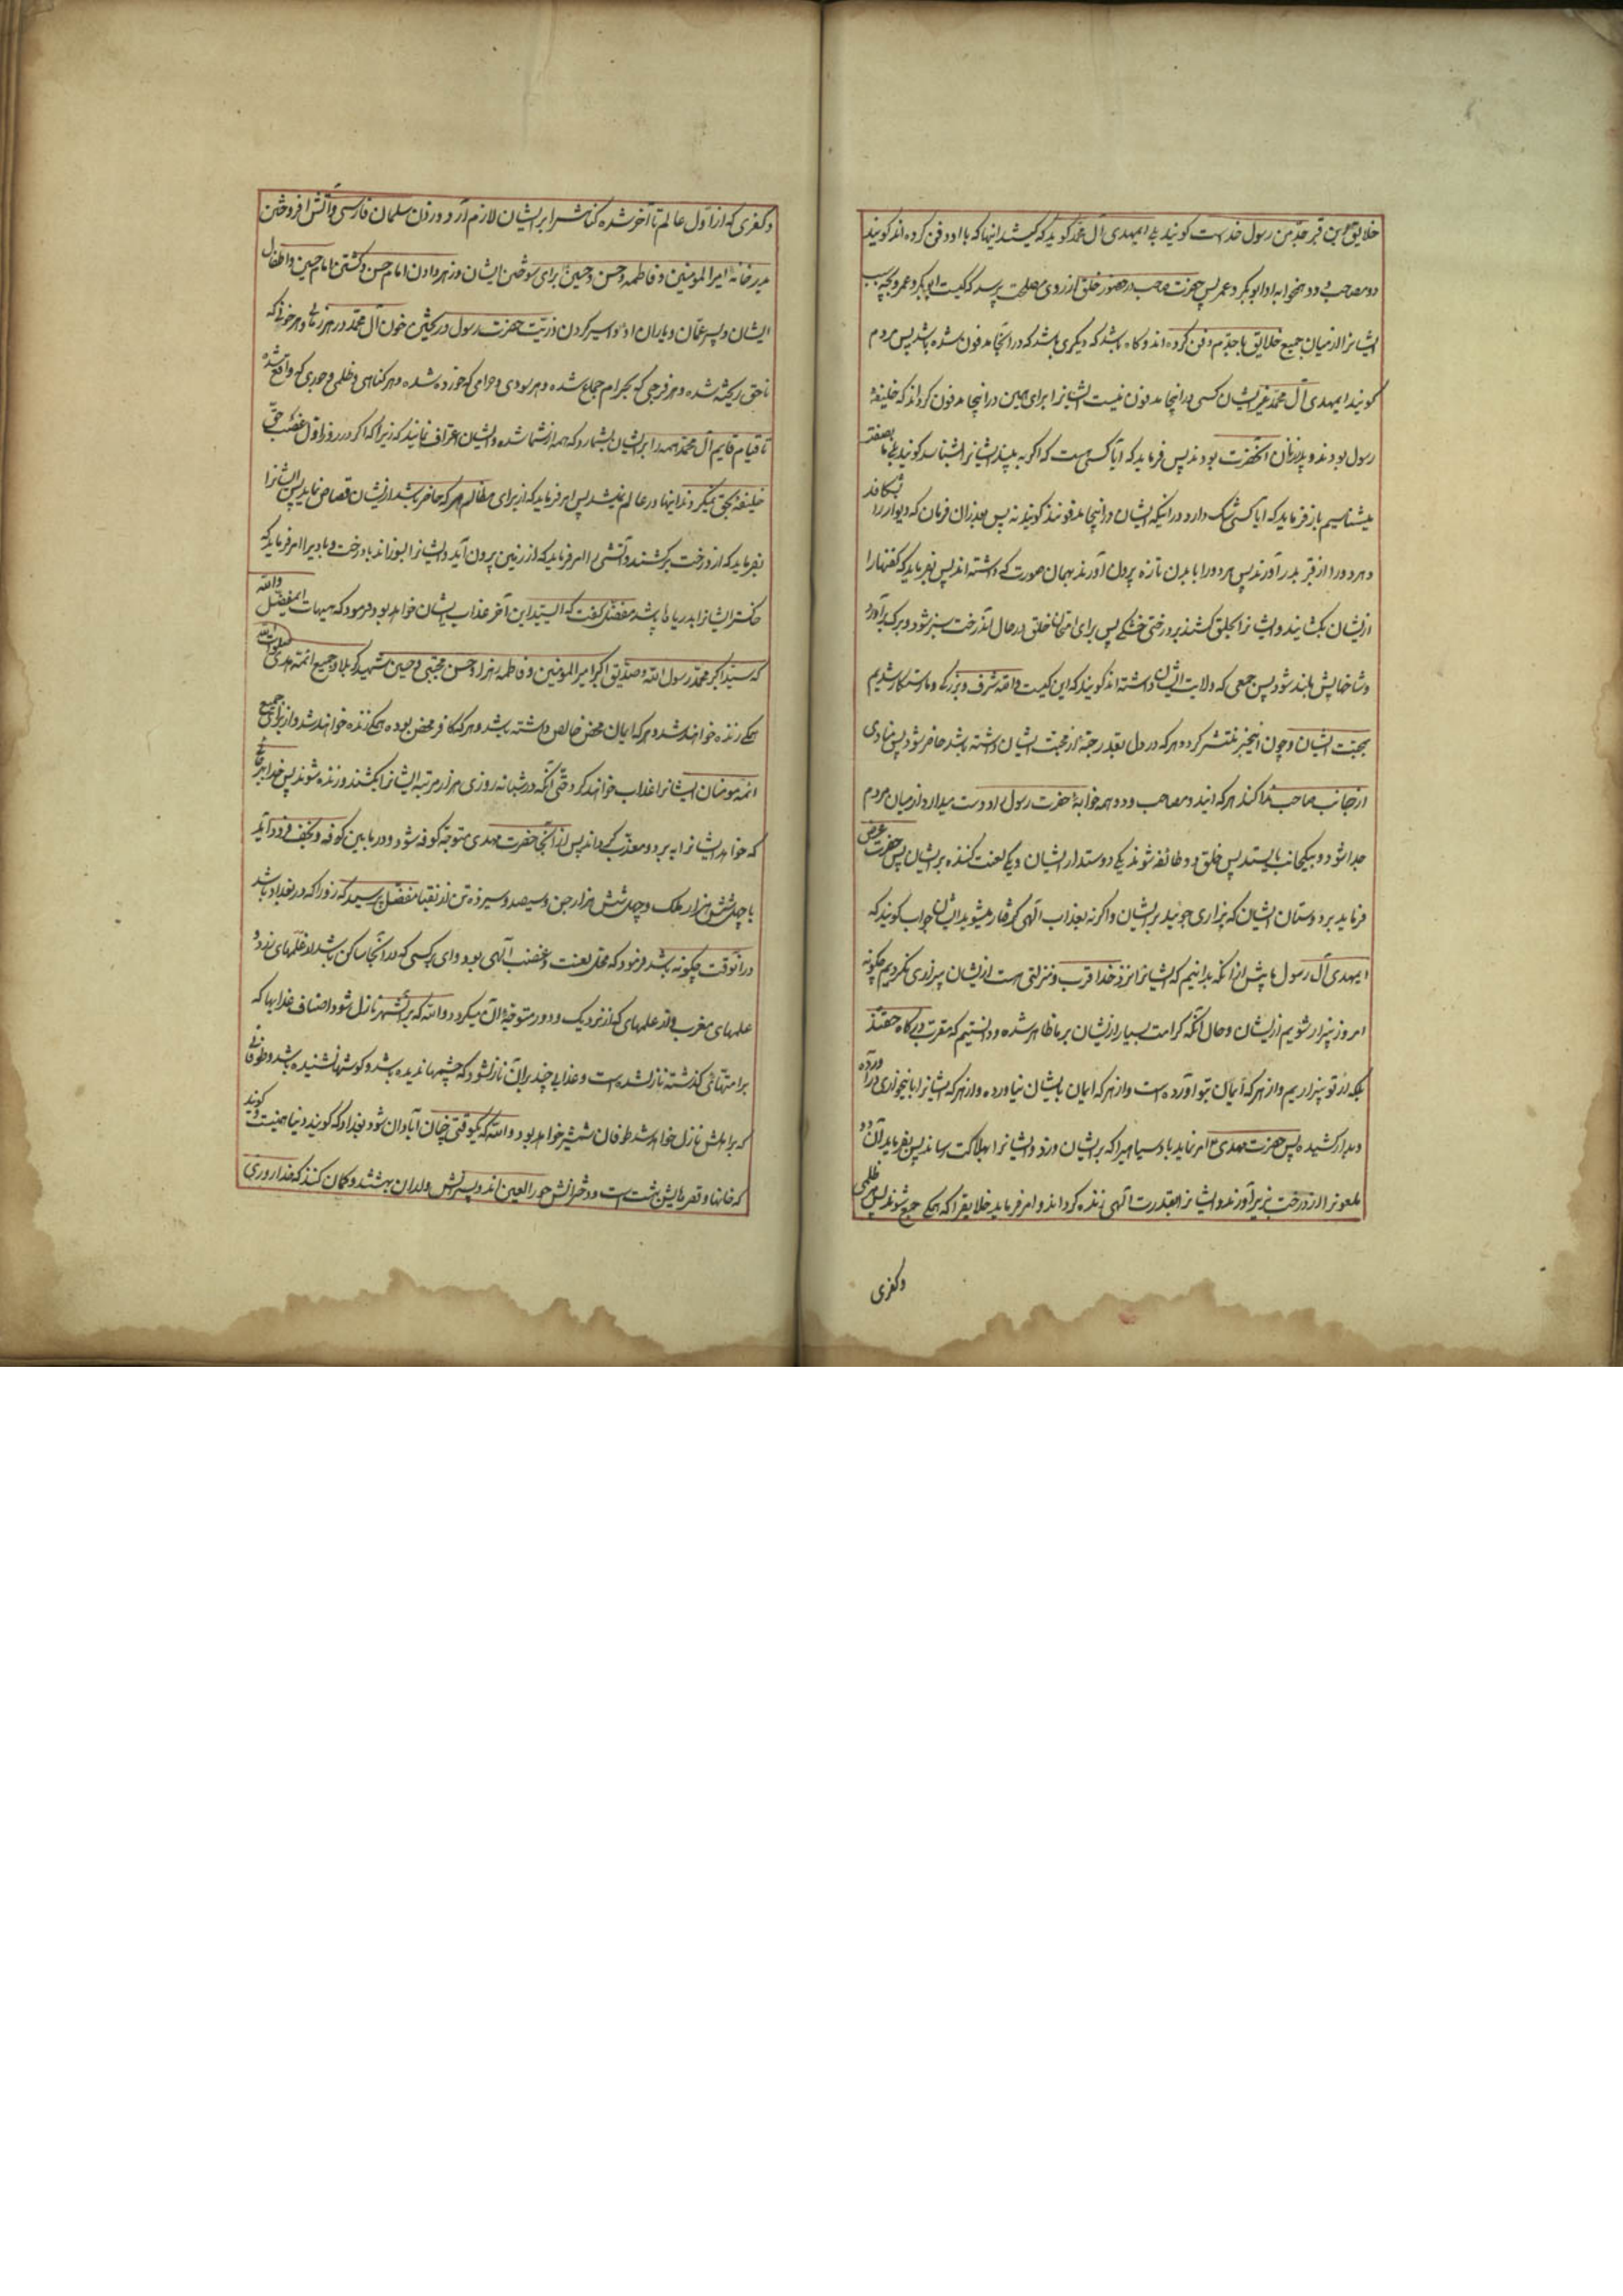 خلایق این قبر جد من رسول خداست کویند بلی ایمهدی آل محمد کوید که کیستند اینها که با او دفن کرده اند کویند
دو مصاحب و دو همخوابه او ابو بکر و عمر پس حضرت صاحب در حضور خلق از روی مصلحت پرسد که کیست ابو بکر و عمر و بچه سبب
ایشانرا از میان جمیع خلایق با جدم دفن کرده اند و کاه باشد که دیکری باشد که در انجا مدفون شده باشد پس مردم
کویند ایمهدی آل محمد غیر ایشان کسی در اینجا مدفون نیست ایشانرا برای همین در اینجا مدفون کرده اند که خلیفهٔ
رسول بودند و پدر زنان آنحضرت بودند پس فرماید که ایا کسی هست که اکر به بیند ایشانرا بشناسد کویند بلی ما بصفت
میشناسیم باز فرماید که ایا کسی شک دارد در اینکه ایشان در اینجا مدفونند کویند نه پس بعد از ان فرمان که دیوار را بشکافند
و هر دو را از قبر بدر آورند پس هر دو را با بدن تازه بیرون آورند بهمان صورت که داشته اند پس بفرماید که کفنها را
از ایشان بکشایند و ایشانرا بحلق کشند بر درختی خشکی پس برای امتحان خلق در حال آندرخت سبز شود و برک برآورد
و شاخهایش بلند شود پس جمعی که ولایت ایشان داشته اند کویند که این کیست والله شرف و بزرکی و ما رستکار شدیم
بمحبت ایشان و چون اینخبر منتشر کردد هر که در دل بقدر حبهٔ از محبت ایشان داشته باشد حاضر شود پس منادی
از جانب صاحب ندا کند هر که ایند و مصاحب و دو همخوابهٔ حضرت رسول را دوست میدارد از میان مردم
جدا شود و بیکجانب بایستد پس خلق دو طائفه شوند یکی دوستدار ایشان و یکی لعنت کننده بر ایشان پس حضرت عرض
فرماید بر دوستان ایشان که بیزاری جویید از ایشان و اکرنه بعذاب الهی کرفتار میشوید ایشان جواب کویند که
ایمهدی آل رسول ما پیش از انکه بدانیم که ایشانرا نزد خدا قرب و منزلتی هست از ایشان بیزاری نکردیم چکونه
امروز بیزار شویم از ایشان و حال انکه کرامت بسیار از ایشان بر ما ظاهر شده و دانستیم که مقرب درکاه حقند
بلکه از تو بیزاریم و از هر که ایمان بتو آورده است و از هر که ایمان بایشان نیاورده و از هر که ایشانرا باینخواری در آورده
و بدار کشیده پس حضرت مهدی امر نماید باد سیاهیرا که بر ایشان وزد و ایشانرا بهلاکت رساند پس بفرماید آن دو
ملعونرا از درخت بزیر آورند و ایشانرا بقدرت الهی زنده کرداند و امر فرماید خلایقرا که همکی جمع شوند پس هر ظلمی
وکفری
وکفری که از اول عالم تا آخر شده کناهش را بر ایشان لازم آرد و زدن سلمان فارسی و آتش افروختن
بدر خانه امیرالمومنین و فاطمه و حسن و حسین برای سوختن ایشان و زهر دادن امام حسن و کشتن امام حسین و اطفال
ایشان و پسر عمان و یاران او و اسیر کردن ذریت حضرت رسول و ریختن خون آل محمد در هر زمانی و هر خونی که
ناحق ریخته شده و هر فرجی که بحرام جماع شده و هر سودی و حرامی که خورده شده و هر کناهی و ظلمی و جوری که واقع شده
تا قیام قایم آل محمد همه را بر ایشان بشمارد که همه از شما شده و ایشان اعتراف نمایند که زیرا که اکر در روز اول غصب حق
خلیفهٔ بحق نمیکردند اینها در عالم نمیشد پس امر فرماید که از برای مظالم هر که حاضر باشد از ایشان قصاص نماید پس ایشانرا
بفرماید که از درخت برکشند و آتشی را امر فرماید که از زمین بیرون آید و ایشانرا بسوزاند با درخت و بادیرا امر فرماید که
خاکستر ایشانرا بدریاها پاشد مفضل کفت که ای سید این آخر عذاب ایشان خواهد بود فرمود که هیهات ایمفضل والله
که سید اکبر محمد رسول الله و صدیق اکبر امیرالمومنین و فاطمه زهرا و حسن مجتبی و حسین شهید کربلا و جمیع ائمه هدی صلوات الله
همکی زنده خواهند شد و هر که ایمان محض خالص داشته باشد و هر که کافر محض بوده همکی زنده خواهند شد و از برای جمیع
ائمه و مومنان ایشانرا عذاب خواهند کرد حتی آنکه در شبانه روزی هزار مرتبه ایشانرا بکشند و زنده شوند پس خدا بهر جا
که خواهد ایشانرا ببرد و معذب کرداند پس از آنجا حضرت مهدی متوجه کوفه شود و در مابین کوفه و نجف فرود آید
با چهل شش هزار ملک و چهل شش هزار جن و سیصد و سیزده تن از نقبا مفضل پرسید که زورا که در بغداد باشد
در آنوقت چکونه باشد فرمود که محل لعنت و غضب آلهی بود وای بر کسی که در آنجا ساکن باشد از علمهای زرد و
علمهای مغرب و از علمهای که از نزدیک و دور متوجه آن میکردد والله که بر آنشهر نازل شود اصناف عذابها که
بر امتهائی کذشته نازلشده است و عذابی چند بر آن نازلشود که چشمها ندیده باشد و کوشها نشنیده باشد و طوفانی
که بر اهلش نازل خواهد شد طوفان شمشیر خواهد بود والله که یکوقتی چنان آبادان شود بغداد که کویند دنیا همینست و کویند
که خانها و قصرهایش بهشت است و دخترانش حورالعین اند و پسرانش ولدان بهشتند و کمان کنند که خدا روزی